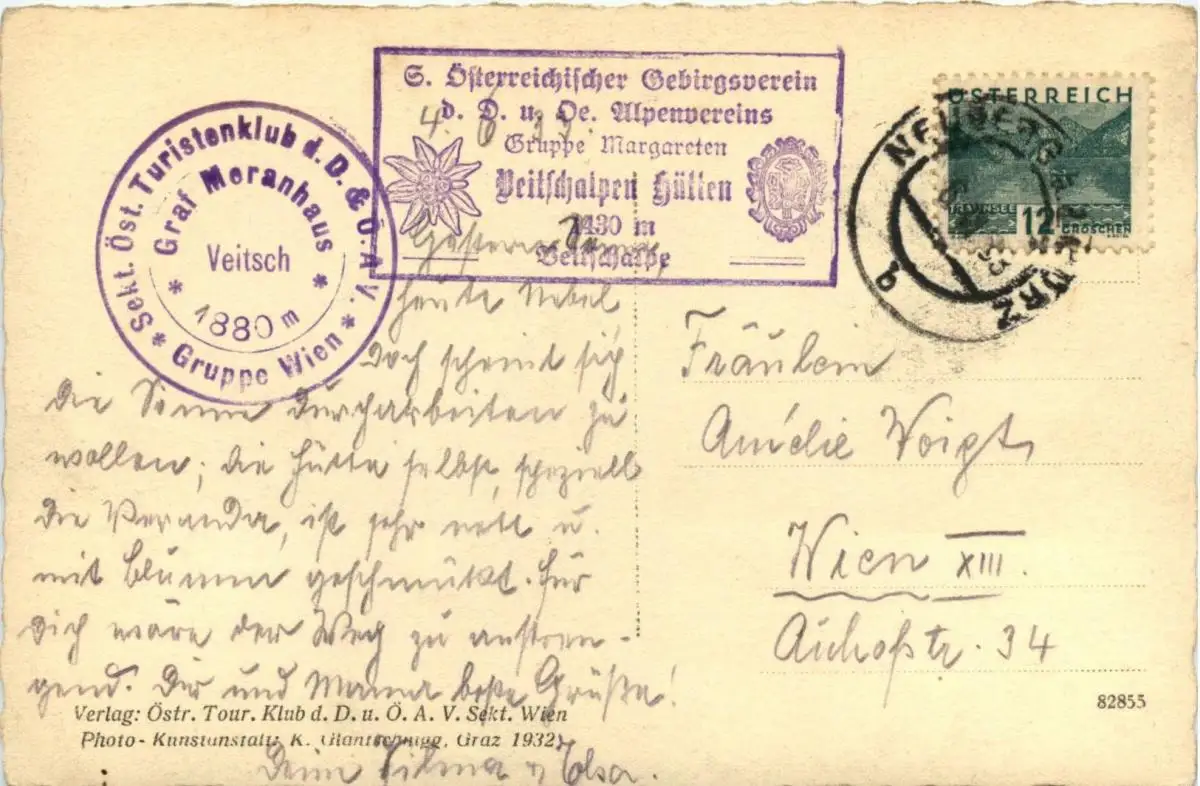 S. Österreichischer Gebirgsverein
d. D. u. Oe. Alpenvereins
Gruppe Margareten
Veitschalpen Hütten
1430 m
Veitschalpe
Sekt. Öst. Turistenklub d. D. & Ö. A. V.
* Gruppe Wien *
* Graf Meranhaus *
Veitsch
1880 m
ÖSTERREICH
12
GROSCHEN
NEUBERG
4. 6.
Gestern
heute Nebel
Doch scheint sich
die Sonne durcharbeiten zu
wollen; die Hütte selbst, speziell
die Veranda, ist sehr nett u.
mit Blumen geschmückt. Für
Dich wäre der Weg zu anstren-
gend. Dir und Mama beste Grüße!
Fräulein
Amélie Voigt
Wien XIII.
Auhofstr. 34
82855
Verlag: Östr. Tour. Klub d. D. u. Ö. A. V. Sekt. Wien
Photo-Kunstanstalt: K. Glantschnigg, Graz 1932